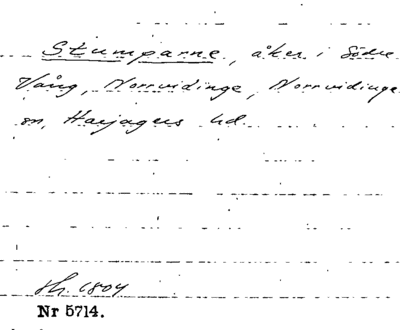 Stumparne, åker i Södre
Vång, Norrvidinge, Norrvidinge
sn, Harjagers hd.
Sh. 1804
Nr 5714.